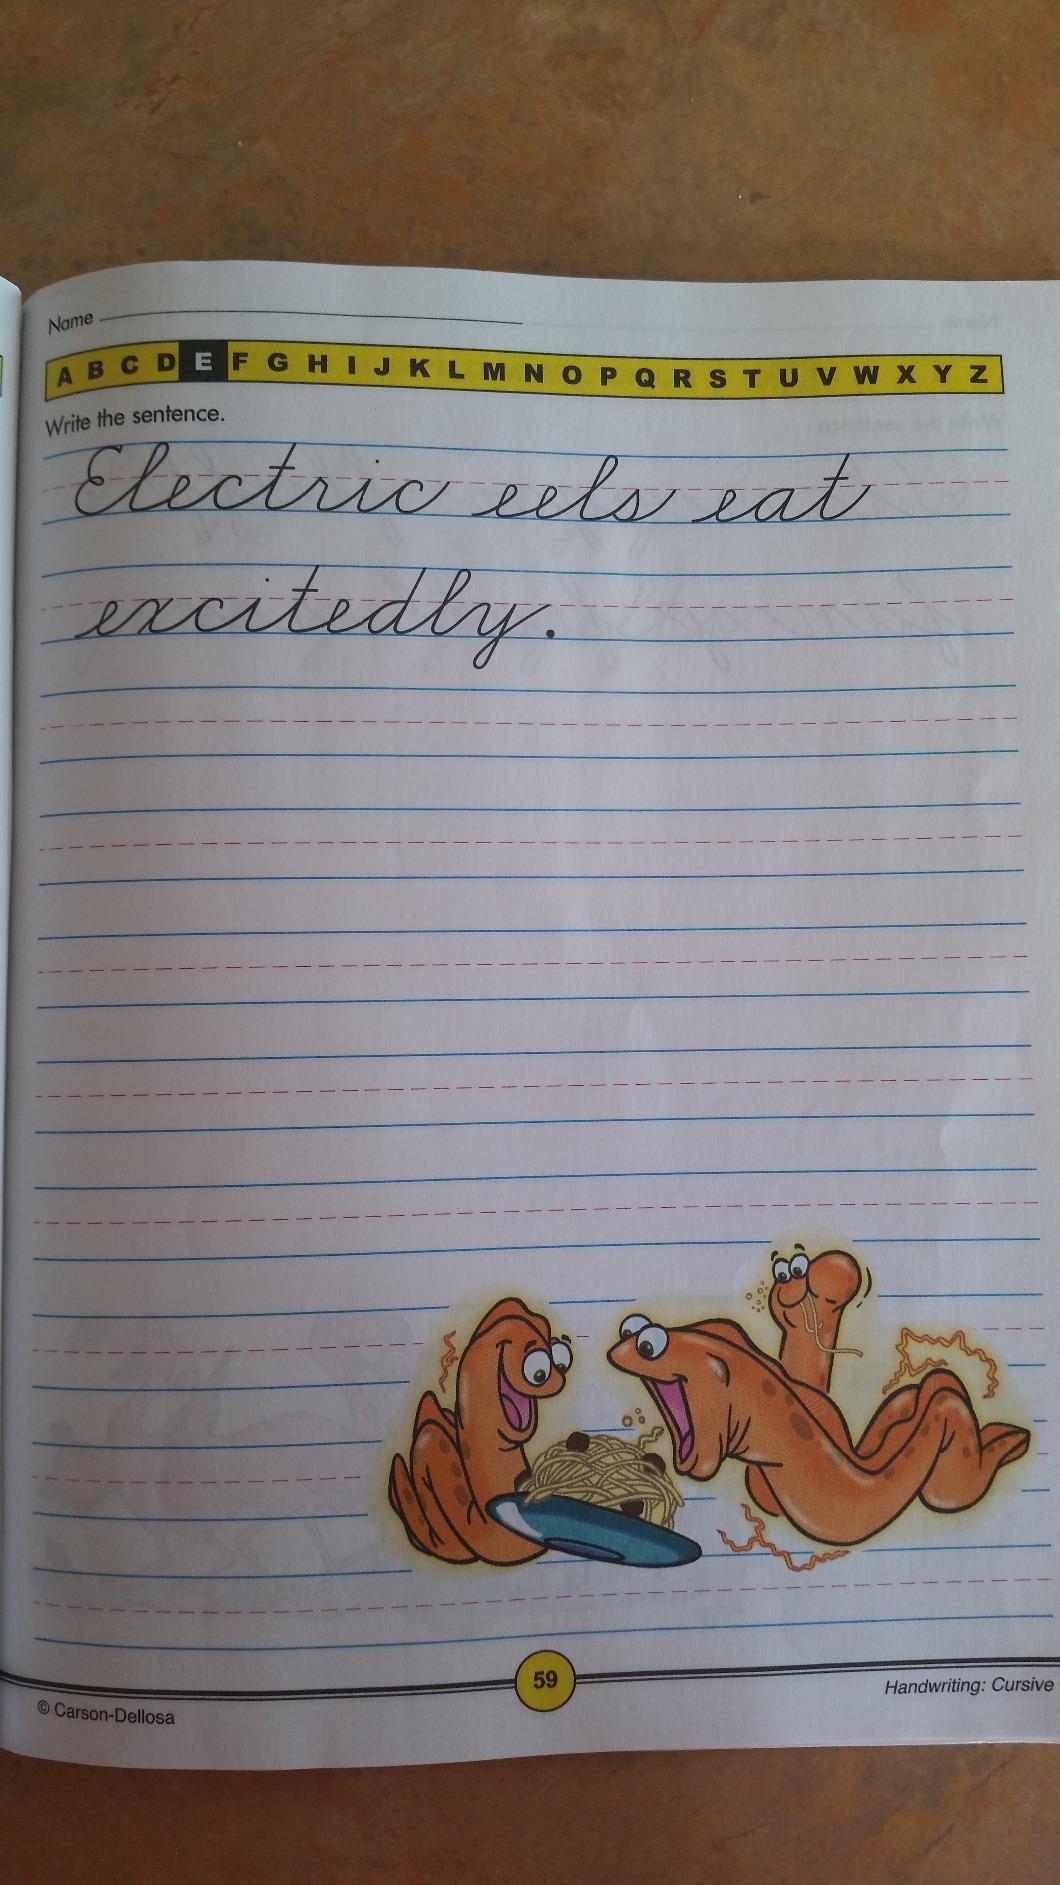 Name
A B C D E F G H I J K L M N O P Q R S T U V W X Y Z
Write the sentence.
Electric eels eat
excitedly.
59
Handwriting: Cursive
© Carson-Dellosa